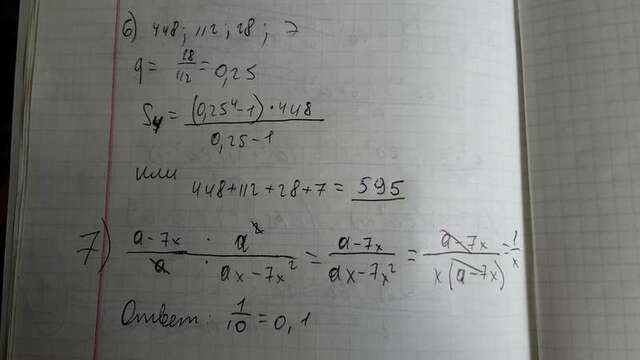 б) 448; 112; 28; 7
q = 28/112 = 0,25
S4 = (0,25⁴-1)·448 / 0,25-1
или
448+112+28+7 = 595
7) a-7x/a · a²/ax-7x² = a-7x/ax-7x² = a-7x/x(a-7x) = 1/x
Ответ: 1/10 = 0,1